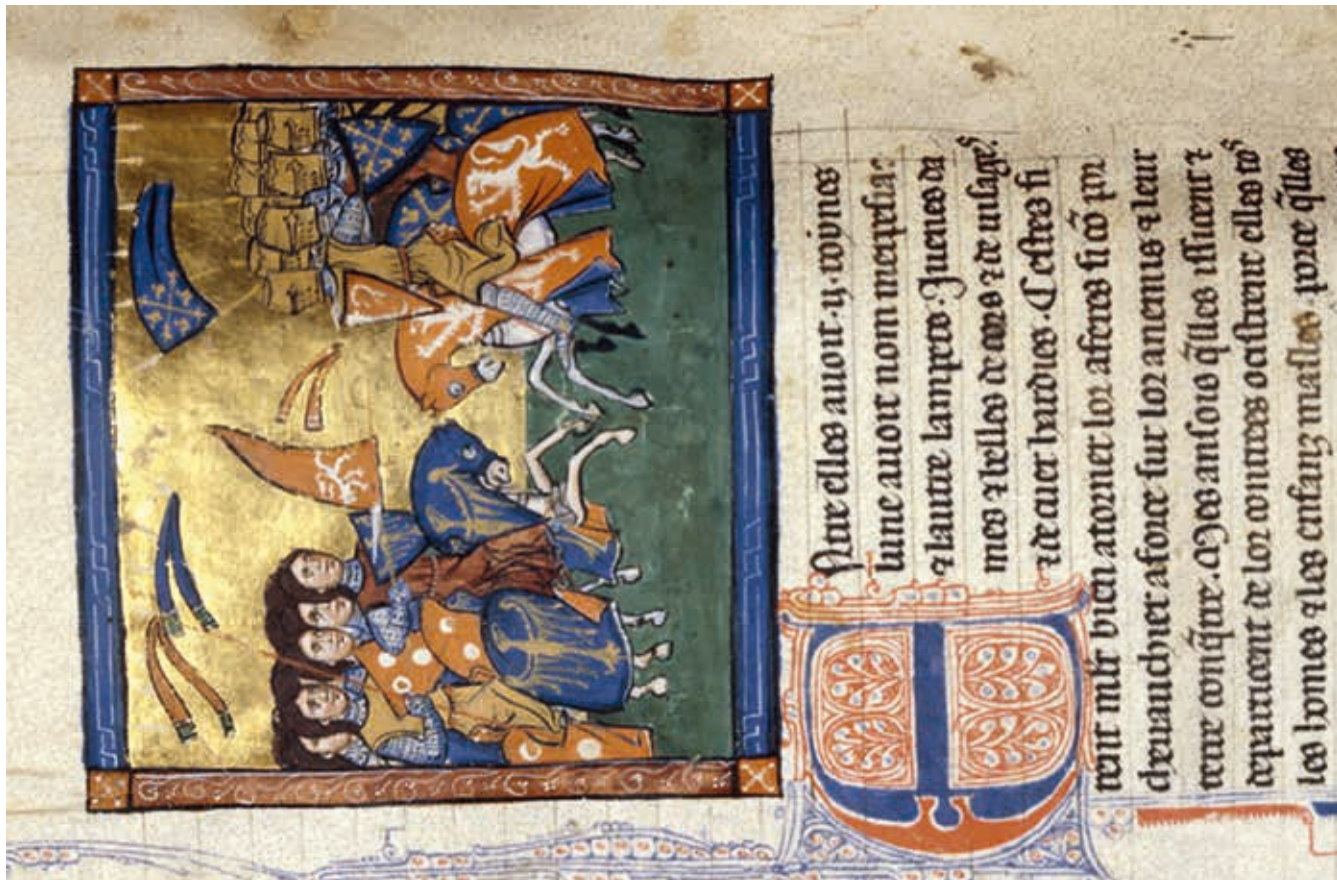 ENtre elles auoit .ij. roynes
lune auoit nom merpesia:
⁊ lautre lampeto. Juenes da
mes ⁊ belles de cors ⁊ de uisage.
⁊ de cuer hardies. Cestes fi
rent mlt bien atorner lor aferes si cō por
cheuauchier a force sur lor anemis ⁊ leur
terre conq̄rre. Mes ansois q̄lles ississent ⁊
departissent de lor contrees ocistrent elles toˢ
les homes ⁊ les enfanz masles. porce q̄lles